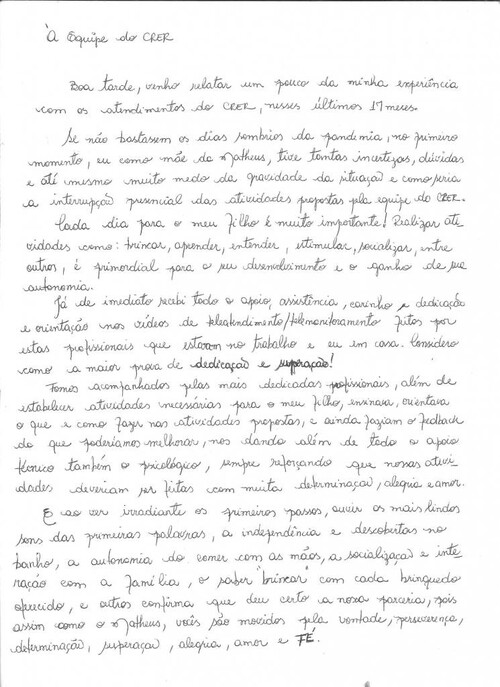 À Equipe do CRER
Boa tarde, venho relatar um pouco da minha experiência
com os atendimentos do CRER, nesses últimos 17 meses.
Se não bastassem os dias sombrios da pandemia, no primeiro
momento, eu como mãe do Matheus, tive tantas incertezas, dúvidas
e até mesmo muito medo da gravidade da situação e como seria
a interrupção presencial das atividades propostas pla equipe do CRER.
Cada dia para o meu filho é muito importante! Realizar ati
vidades como: brincar, aprender, entender, estimular, socializar, entre
outros, é primordial para o seu desenvolvimento e o ganho de sua
autonomia.
Já de imediato recebi todo o apoio, assistência, carinho e dedicação
e orientação nos vídeos de teleatendimento/telemonitoramento feitos por
estas profissionais que estavam no trabalho e eu em casa. Considero
como a maior prova de dedicação e superação!
Fomos acompanhados pelas mais dedicadas profissionais, além de
estabelecer atividades necessárias para o meu filho, ensinava, orientava
o que e como fazer nas atividades propostas, e ainda faziam o feedback
do que poderíamos melhorar, nos dando além de todo o apoio
técnico também o psicológico, sempre reforçando que nossas ativi
dades deveriam ser feitas com muita determinação, alegria e amor.
E ao ver irradiante os primeiros passos, ouvir os mais lindos
sons das primeiras palavras, a independência e descobertas no
banho, a autonomia do comer com as mãos, a socialização e inte
ração com a família, o saber "brincar" com cada brinquedo
oferecido, e outros confirma que deu certo a nossa parceria, pois
assim como o Matheus, vocês são movidos pela vontade, perseverança,
determinação, superação, alegria, amor e FÉ.